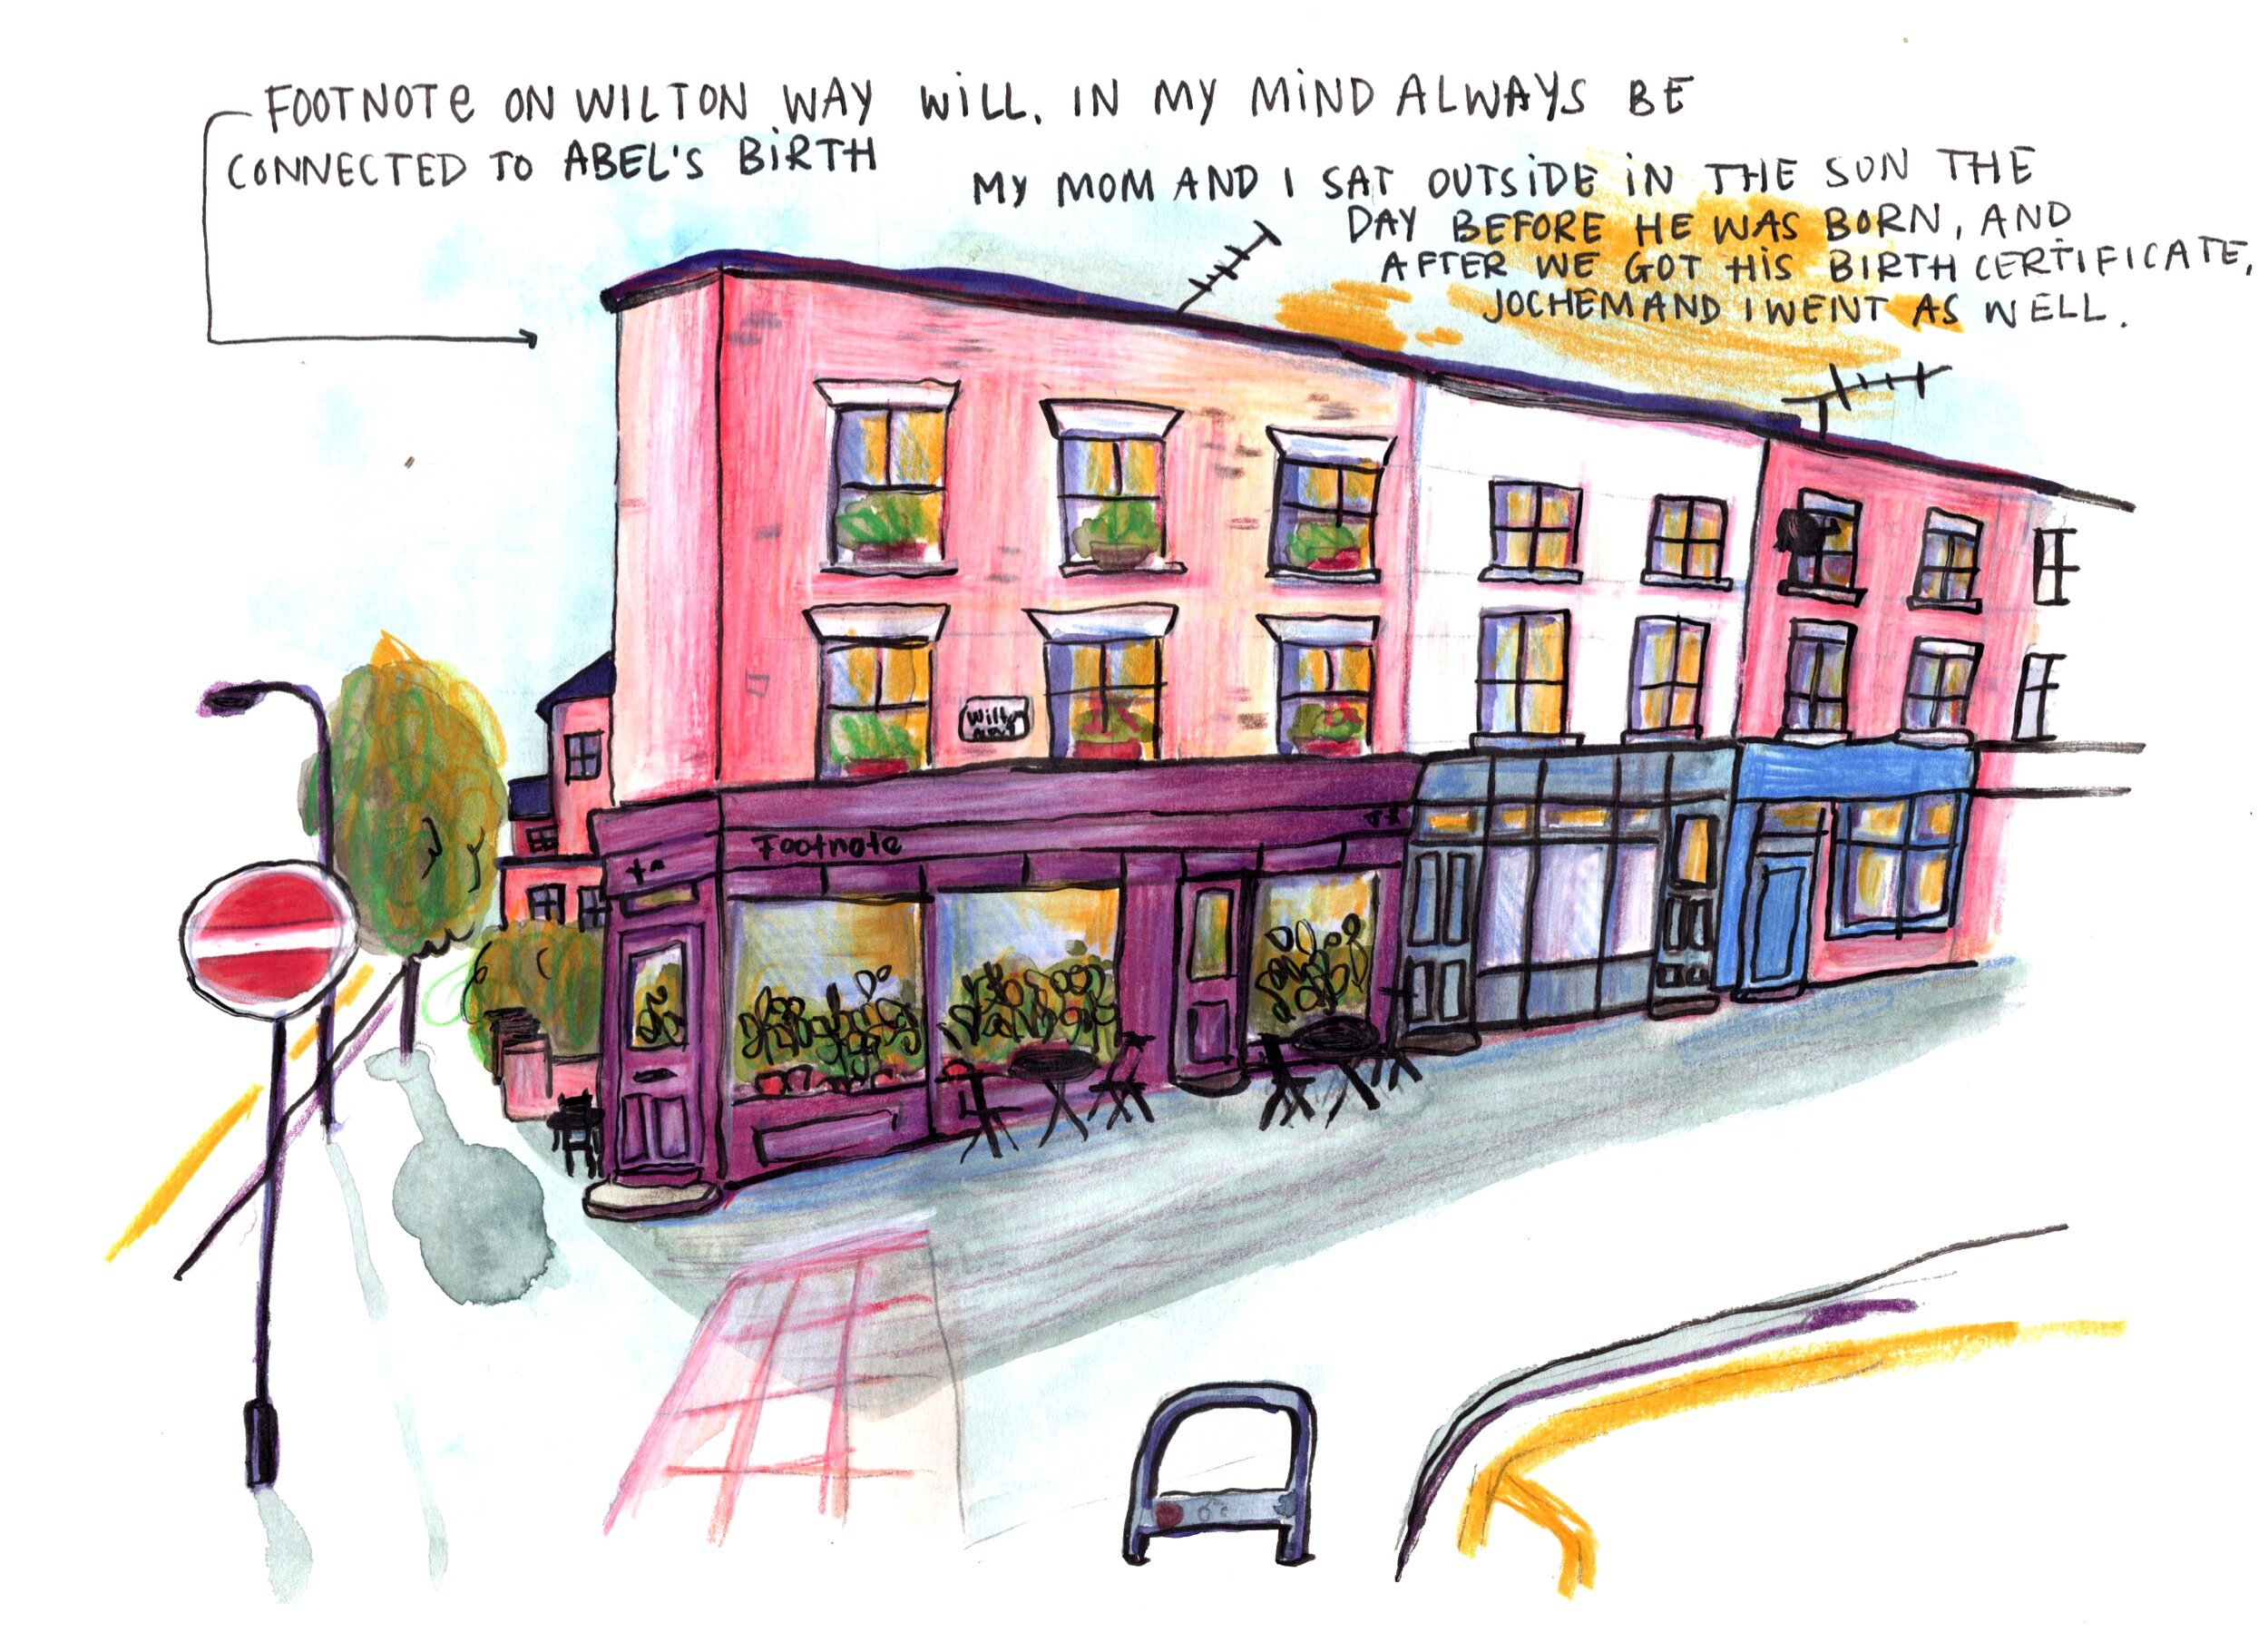 FOOTNOTE ON WILTON WAY WILL. IN MY MIND ALWAYS BE
CONNECTED TO ABEL'S BIRTH
MY MOM AND I SAT OUTSIDE IN THE SUN THE
DAY BEFORE HE WAS BORN, AND
AFTER WE GOT HIS BIRTH CERTIFICATE,
JOCHEM AND I WENT AS WELL.
Wilton
Way
Footnote